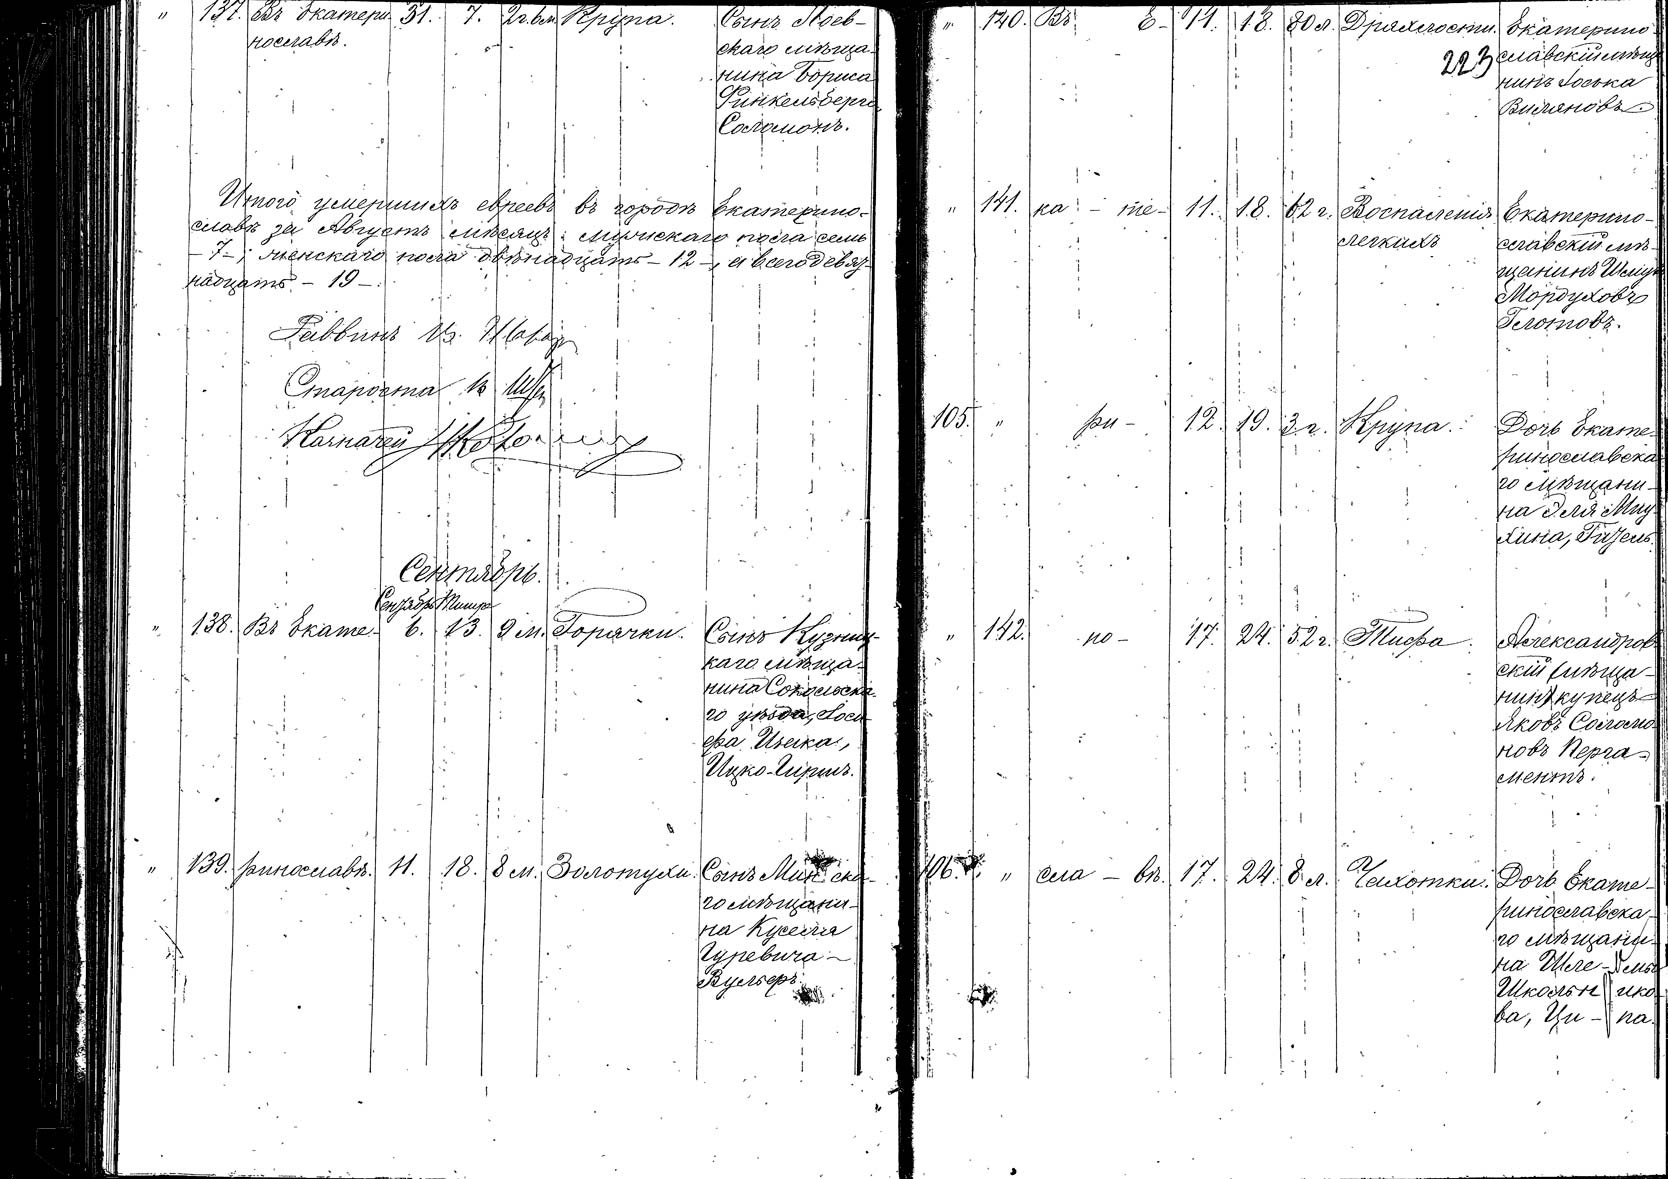 " 137. Въ Екатери- 31. 7. 2г.6м. Крупа. Сынъ Лоев-
нославѣ. скаго мѣща-
нина Бориса
Финкельберга,
Соломонъ.
Итого умершихъ евреевъ въ городѣ Екатерино-
славѣ за Августъ мѣсяцъ: мужскаго пола семь
- 7 -; женскаго пола двѣнадцать - 12 -, а всего девят-
надцать - 19 -.
Раввинъ
Староста
Казначей
Сентябрь.
Сентябрь Тишри
" 138. Въ Екате- 6. 13. 9 м. Горячки. Сынъ Кузниц-
каго мѣща-
нина Сокольска-
го уѣзда, Іоси-
фа Ицка,
Ицко-Гиршъ.
" 139. ринославѣ. 11. 18. 8 м. Золотухи. Сынъ Минска-
го мѣщани-
на Куселя
Гуревича -
Вульфъ.
" 140. Въ Е- 11. 18. 80 л. Дряхлости. Екатерино-
223 славскій мѣща-
нинъ Іоська
Вимяновъ.
" 141. ка - те- 11. 18. 62 г. Воспаленія Екатерино-
легкихъ славскій мѣ-
щанинъ Шмуй
Мордуховъ
Глотовъ.
105. " ри- 12. 19. 3 г. Крупа. Дочь Екате-
ринославска-
го мѣщани-
на Эля Миу-
хина, Гизель.
" 142. но- 17. 24. 52 г. Тифа. Александров-
скій мѣща-
нинъ купецъ
Яковъ Соломо-
новъ Перга-
ментъ.
106. " сла - вѣ. 17. 24. 8 л. Чахотки. Дочь Екате-
ринославска-
го мѣщани-
на Шле- мы
Школьн ико-
ва, Ци- па.